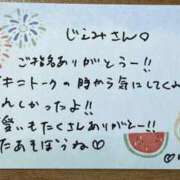 じぇみさん♡
ご指名ありがとうー!!
キニトークの時から気にしてくみ
んしかったよ!!
愛いもたくさんありがとー!!
たあそぼうね♡